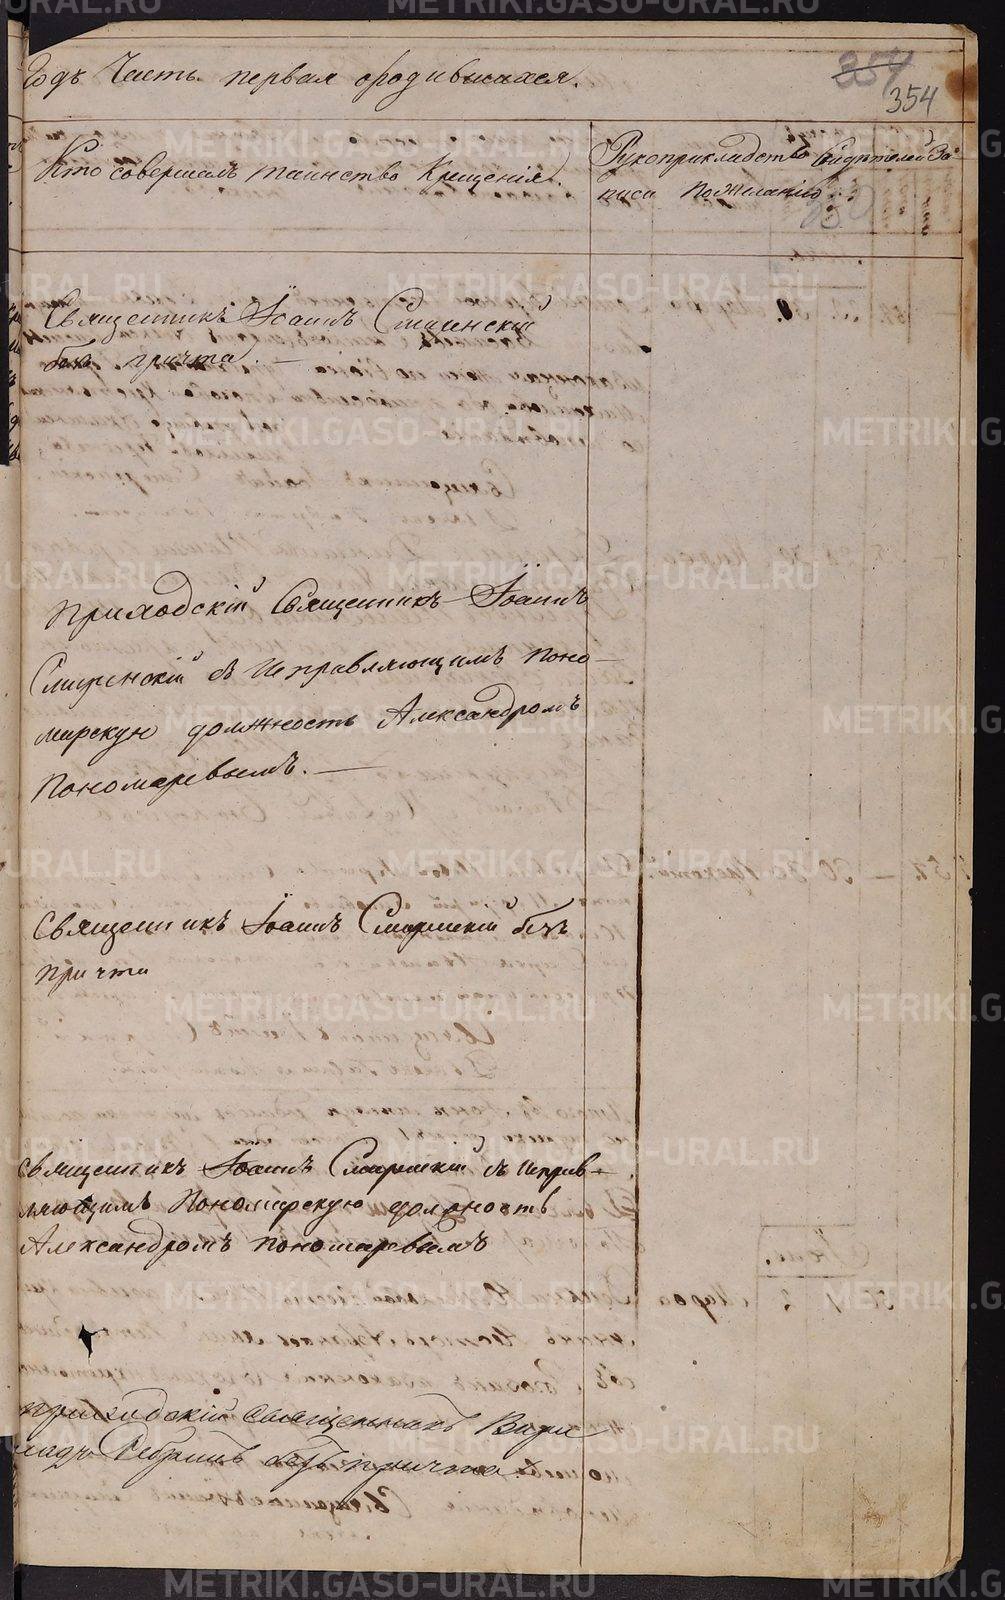 годъ Часть первая о родившихся.
354
354
Кто совершалъ таинство Крещенія.
Рукоприкладство свидѣтелей за-
писи по желанію
Священникъ Іоаннъ Смиренскій
безъ причта. —
Приходскій Священникъ Іоаннъ
Смиренскій съ исправляющимъ поно-
марскую должность Александромъ
Пономаревымъ. —
Священникъ Іоаннъ Смиренскій безъ
причта
Священникъ Іоаннъ Смиренскій съ исправ-
ляющимъ Пономарскую должность
Александромъ Пономаревымъ
приходскій священникъ
безъ причта
METRIKI.GASO-URAL.RU